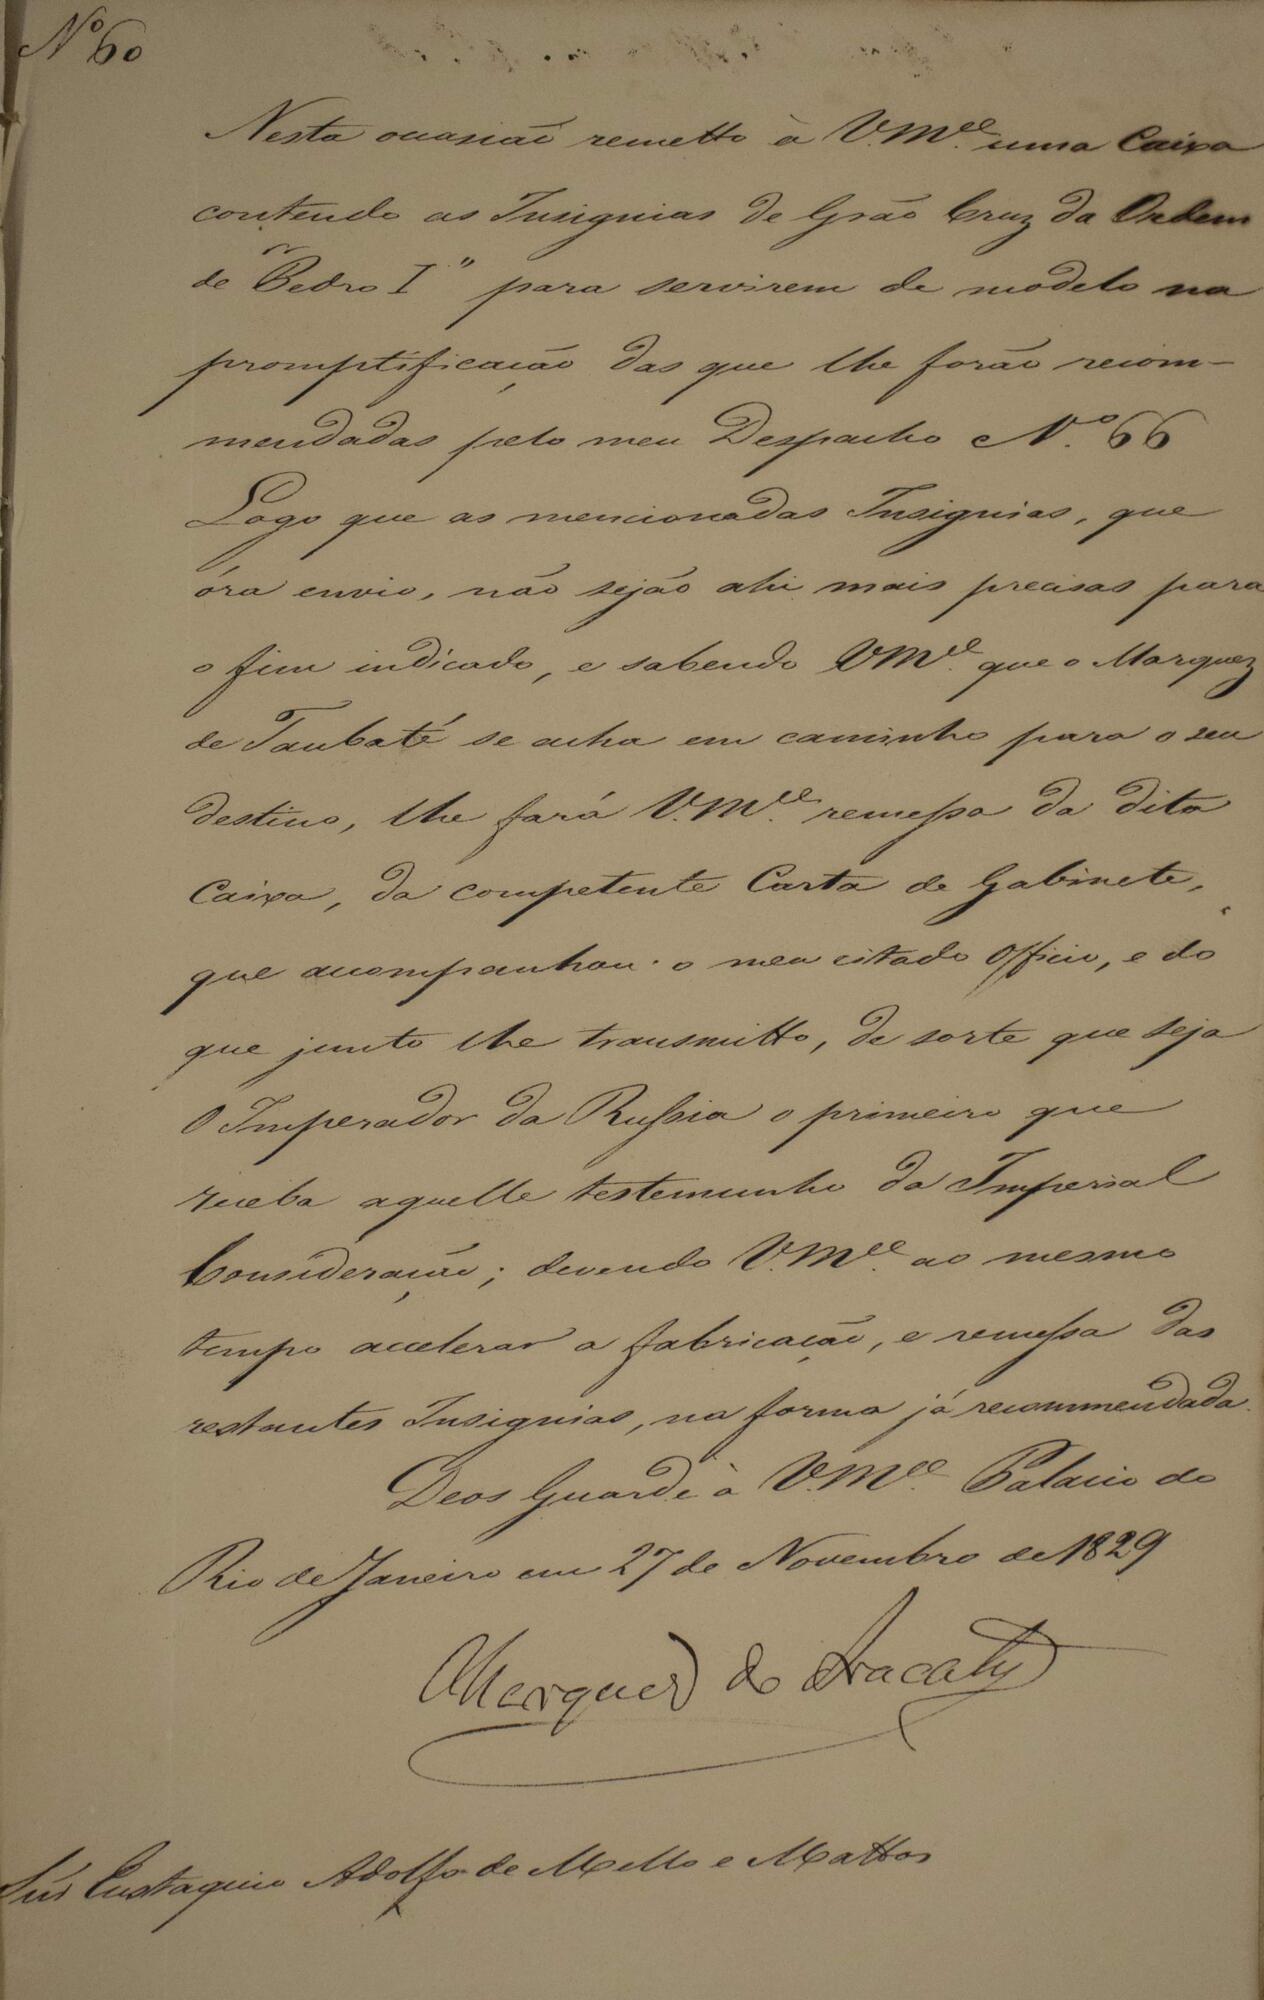 Nº 60
Nesta occasião remetto à V.M.ce uma Caixa
contendo as Insignias de Grão Cruz da Ordem
de "Pedro I" para servirem de modelo na
promptificação das que lhe forão recom-
mendadas pelo meu Despacho Nº. 66
Logo que as mencionadas Insignias, que
óra envio, não sejão ahi mais precisas para
o fim indicado, e sabendo VM.ce que o Marquez
de Taubaté se acha em caminho para o seu
destino, lhe fará V.M.ce remessa da dita
Caixa, da competente Carta de Gabinete,
que acompanhou o meu citado Officio, e do
que junto lhe transmitto, de sorte que seja
O Imperador da Russia o primeiro que
receba aquelle testemunho da Imperial
Consideração; devendo V.M.ce ao mesmo
tempo accelerar a fabricação, e remessa das
restantes Insignias, na forma já recommendada.
Deos Guarde à V.M.ce Palacio do
Rio de Janeiro em 27 de Novembro de 1829
Marquez de Aracaty
Snr Eustaquio Adolfo de Mello e Mattos